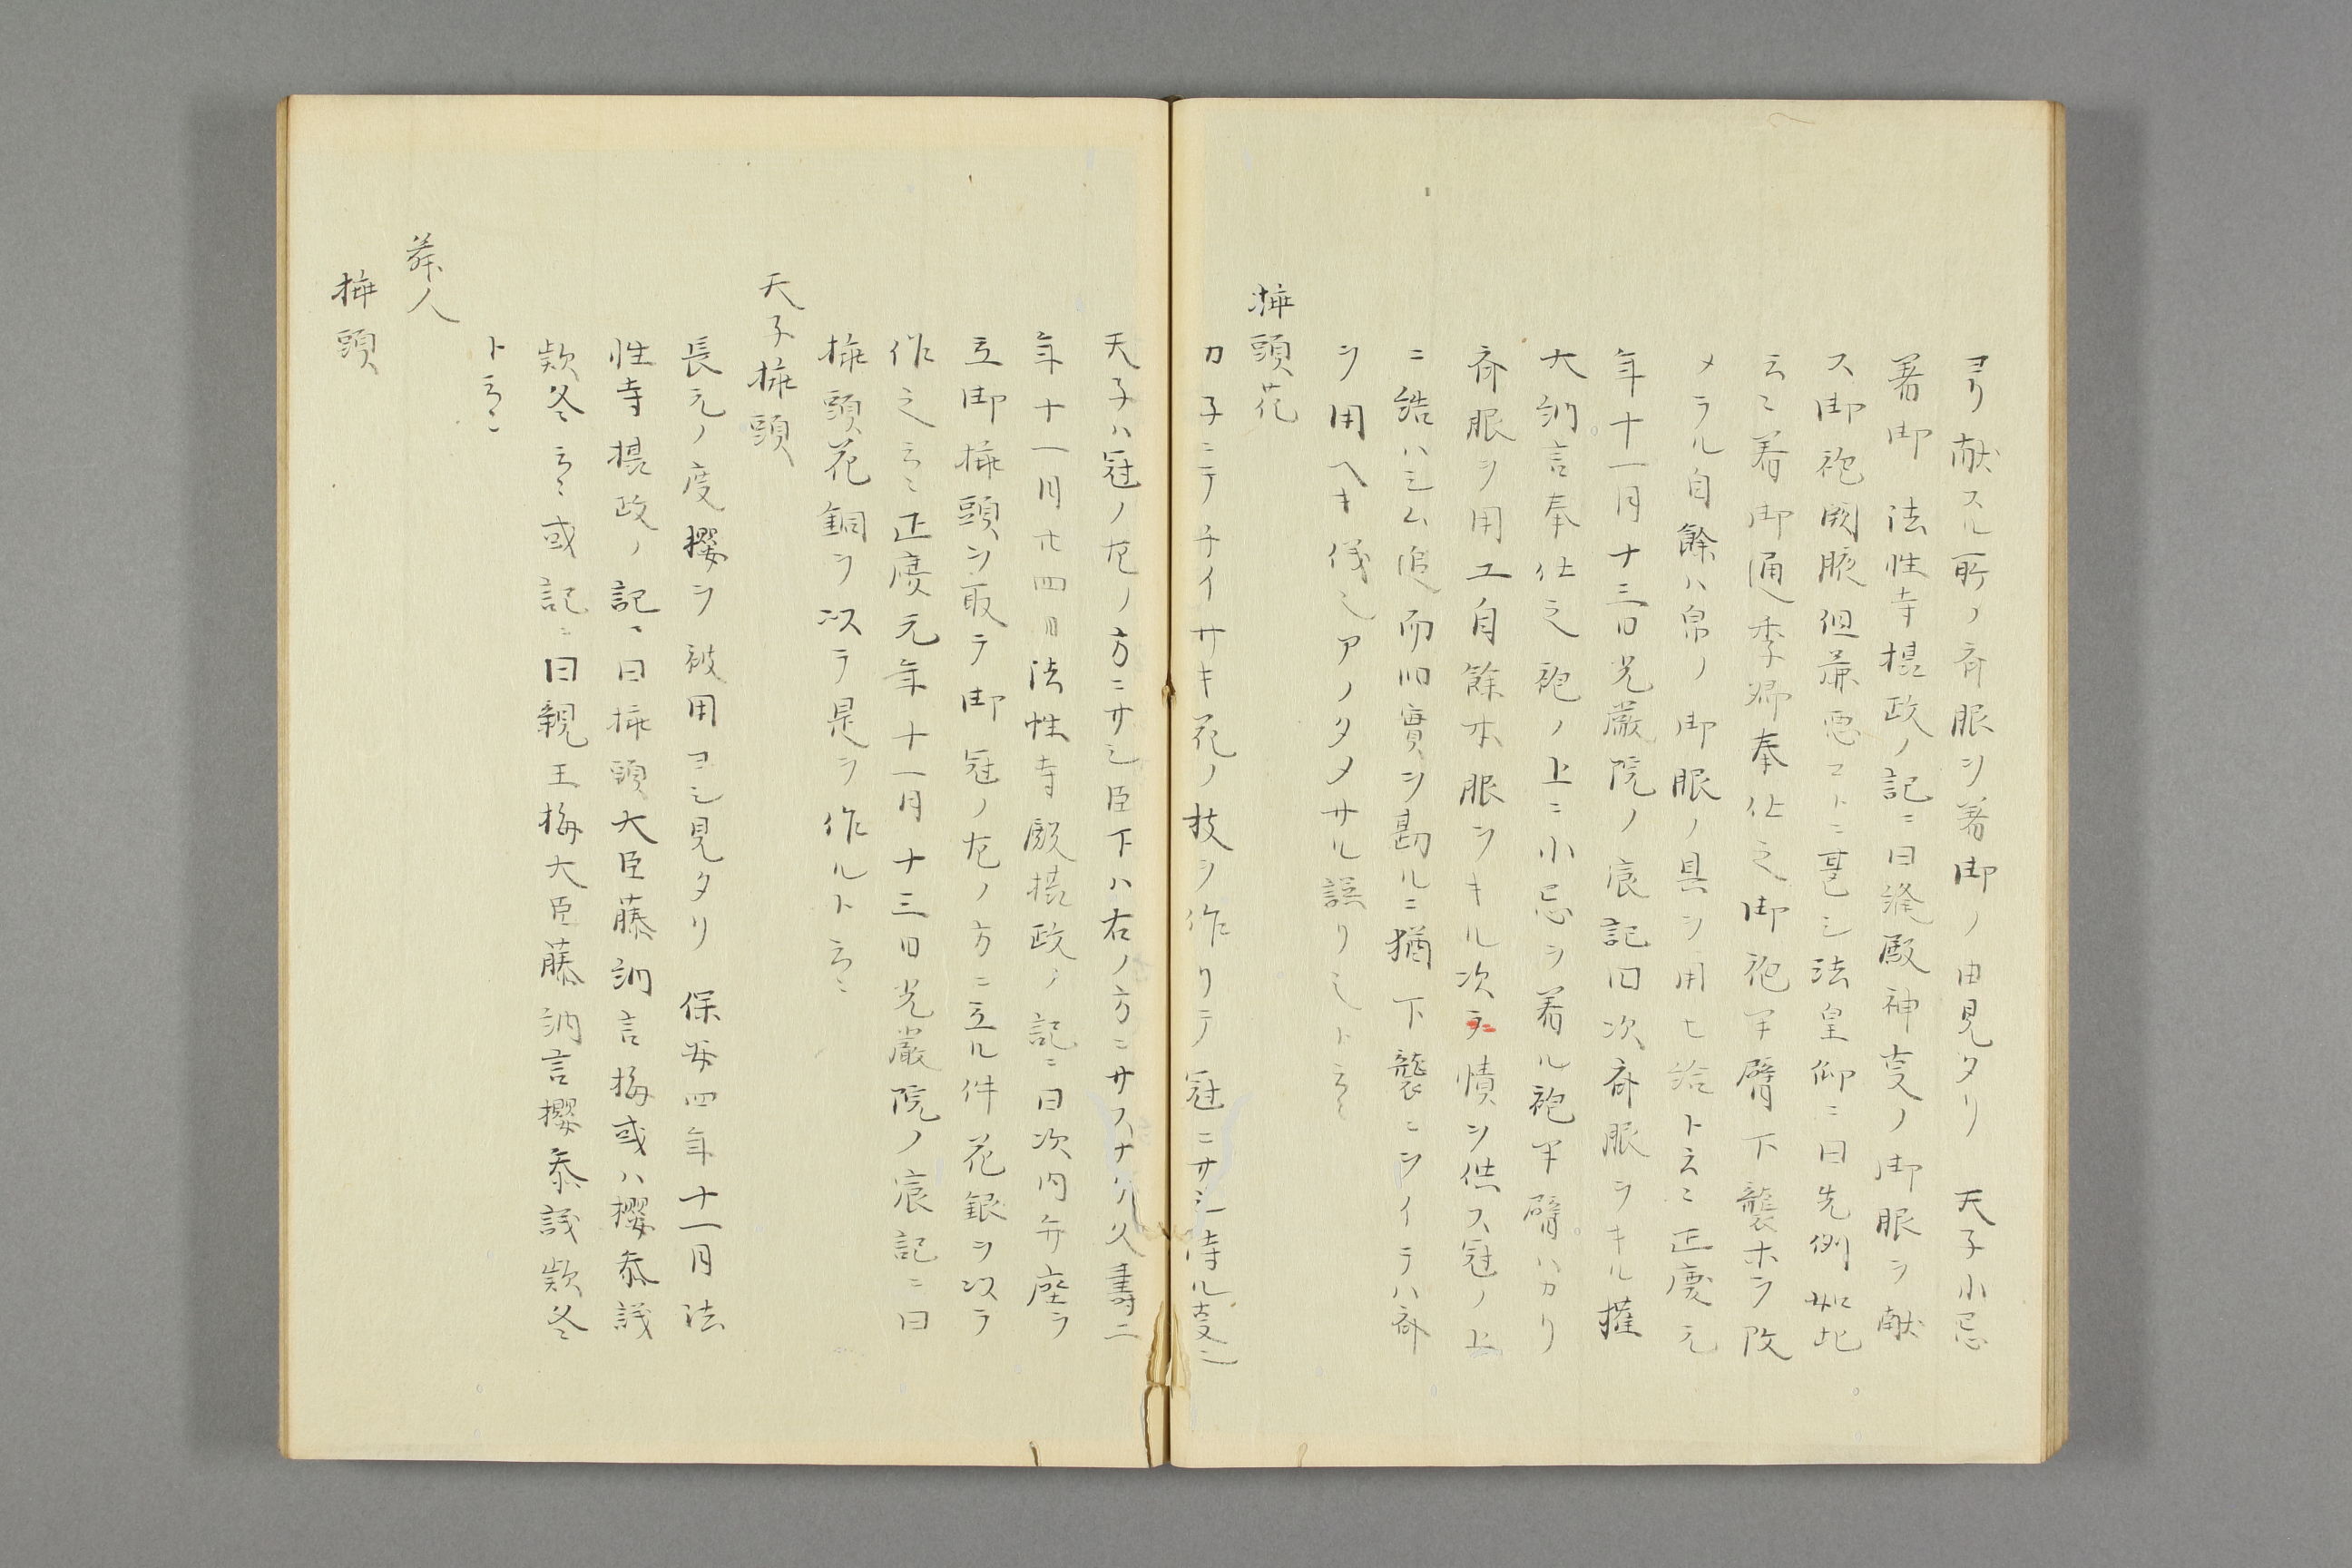 ヨリ献スル所ノ斎服ヲ著御ノ由見タリ　天子小忌
著御　法性寺摂政ノ記ニ曰縫殿神事ノ御服ヲ献
ス御袍闕腋但兼悪コトニ甚シ法皇仰ニ曰先例如此
云々着御通季卿奉仕之御袍半臂下襲ホヲ改
メラル自餘ハ帛ノ御服ノ具ヲ用ヒ給ト云々正慶元
年十一月十三日光厳院ノ宸記曰次斎服ヲキル権
大納言奉仕之袍ノ上ニ小忌ヲ着ル袍半臂ハカリ
斎服ヲ用ユ自餘本服ヲキル次ニ幘ヲ供ス冠ノ上
ニ結ハシム追而旧實ヲ勘ルニ猶下襲ニヲイテハ斎
ヲ用ヘキ儀也アノタメサル誤リシト云々
挿頭花
カネニテチイサキ花ノ枝ヲ作リテ冠ニサシ侍ル事也
天子ハ冠ノ左ノ方ニサシ臣下ハ右ノ方ニサスナリ久壽二
年十一月廿四日法性寺殿摂政ノ記ニ曰次内弁座ヲ
立御挿頭ヲ取テ御冠ノ左ノ方ニ立ル件花銀ヲ以テ
作之云々正慶元年十一月十三日光嚴院ノ宸記ニ曰
挿頭花銅ヲ以テ是ヲ作ルト云々
天子挿頭
長元ノ度櫻ヲ被用ヨシ見タリ　保安四年十一月法
性寺摂政ノ記ニ曰挿頭大臣藤納言梅或ハ櫻参議
欵冬云々或記ニ曰親王梅大臣藤納言櫻参議欵冬
ト云々
舞人
挿頭